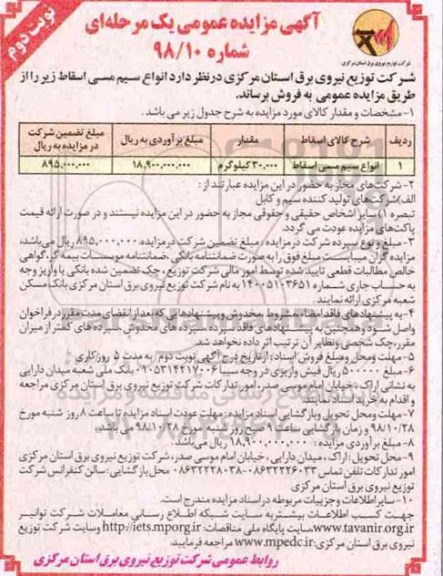 نوبت دوم
آگهی مزایده عمومی یک مرحله‌ای
شماره ۹۸/۱۰
شرکت توزیع نیروی برق استان مرکزی
شرکت توزیع نیروی برق استان مرکزی درنظر دارد انواع سیم مسی اسقاط زیر را از
طریق مزایده عمومی به فروش برساند.
۱- مشخصات و مقدار کالای مورد مزایده به شرح جدول زیر می باشد.
ردیف شرح کالای اسقاط مقدار مبلغ برآوردی به ریال مبلغ تضمین شرکت در مزایده به ریال
۱ انواع سیم مسی اسقاط ۳۰,۰۰۰ کیلوگرم ۱۸,۹۰۰,۰۰۰,۰۰۰ ۸۹۵,۰۰۰,۰۰۰
۲- شرکت‌های مجاز به حضور در این مزایده عبارتند از:
الف) شرکت‌های تولید کننده سیم و کابل
تبصره ۱) سایر اشخاص حقیقی و حقوقی مجاز به حضور در این مزایده نیستند و در صورت ارائه قیمت
پاکت‌های مزایده عودت می گردد.
۳- مبلغ و نوع سپرده شرکت در مزایده: مبلغ تضمین شرکت در مزایده ۸۹۵,۰۰۰,۰۰۰ ریال می‌باشد،
مزایده گران میبایست مبلغ فوق را به صورت ضمانتنامه بانکی، ضمانتنامه موسسات بیمه گر، گواهی
خالص مطالبات قطعی تایید شده توسط امور مالی شرکت توزیع، چک تضمین شده بانکی یا واریز وجه
به حساب جاری شماره ۱۴۰۰۵۱۰۳۶۵۱ به نام شرکت توزیع نیروی برق استان مرکزی بانک مسکن
شعبه مرکزی ارائه نمایند.
۴- به پیشنهادهای فاقد امضاء، مشروط، مخدوش و پیشنهاداتی که بعد از انقضای مدت مقرر در فراخوان
واصل شود و همچنین به پیشنهادهای فاقد سپرده، سپرده های مخدوش، سپرده های کمتر از میزان
مقرر، چک شخصی و نظایر آن ترتیب اثر داده نخواهد شد.
۵- مهلت و محل و مبلغ فروش اسناد: از تاریخ درج آگهی نوبت دوم به مدت ۵ روز کاری
۶- مبلغ ۵۰۰۰۰۰ ریال فیش واریزی در وجه سیبا ۰۱۰۵۳۱۴۲۱۷۰۰۶ بانک ملی شعبه میدان دارایی
به نشانی اراک، خیابان امام موسی صدر، امور تدارکات شرکت توزیع نیروی برق استان مرکزی مراجعه
و اقدام به خرید اسناد نمایند.
۷- مهلت و محل تحویل و بازگشایی اسناد مزایده: مهلت عودت اسناد مزایده تا ساعت ۸ روز شنبه مورخ
۹۸/۱۰/۲۸ و زمان بازگشایی ساعت ۹ روز شنبه مورخ ۹۸/۱۰/۲۸ می باشد.
۸- مبلغ برآوردی مزایده: ۱۸,۹۰۰,۰۰۰,۰۰۰ ریال می‌باشد.
۹- محل تحویل: اراک، میدان دارایی، خیابان امام موسی صدر، شرکت توزیع نیروی برق استان مرکزی
امور تدارکات تلفن تماس ۰۸۶۳۲۲۲۶۰۳۳-۰۸۶۳۲۲۲۸۰۳۸ محل بازگشایی: سالن کنفرانس شرکت
توزیع نیروی برق استان مرکزی
۱۰- سایر اطلاعات و جزییات مربوطه در اسناد مزایده مندرج است.
جهت کسب اطلاعات بیشتر به سایت شبکه اطلاع رسانی معاملات شرکت توانیر
www.tavanir.org.ir سایت پایگاه ملی مناقصات: http://iets.mporg.ir وسایت شرکت توزیع
نیروی برق استان مرکزی: www.mpedc.ir مراجعه فرمایید.
روابط عمومی شرکت توزیع نیروی برق استان مرکزی